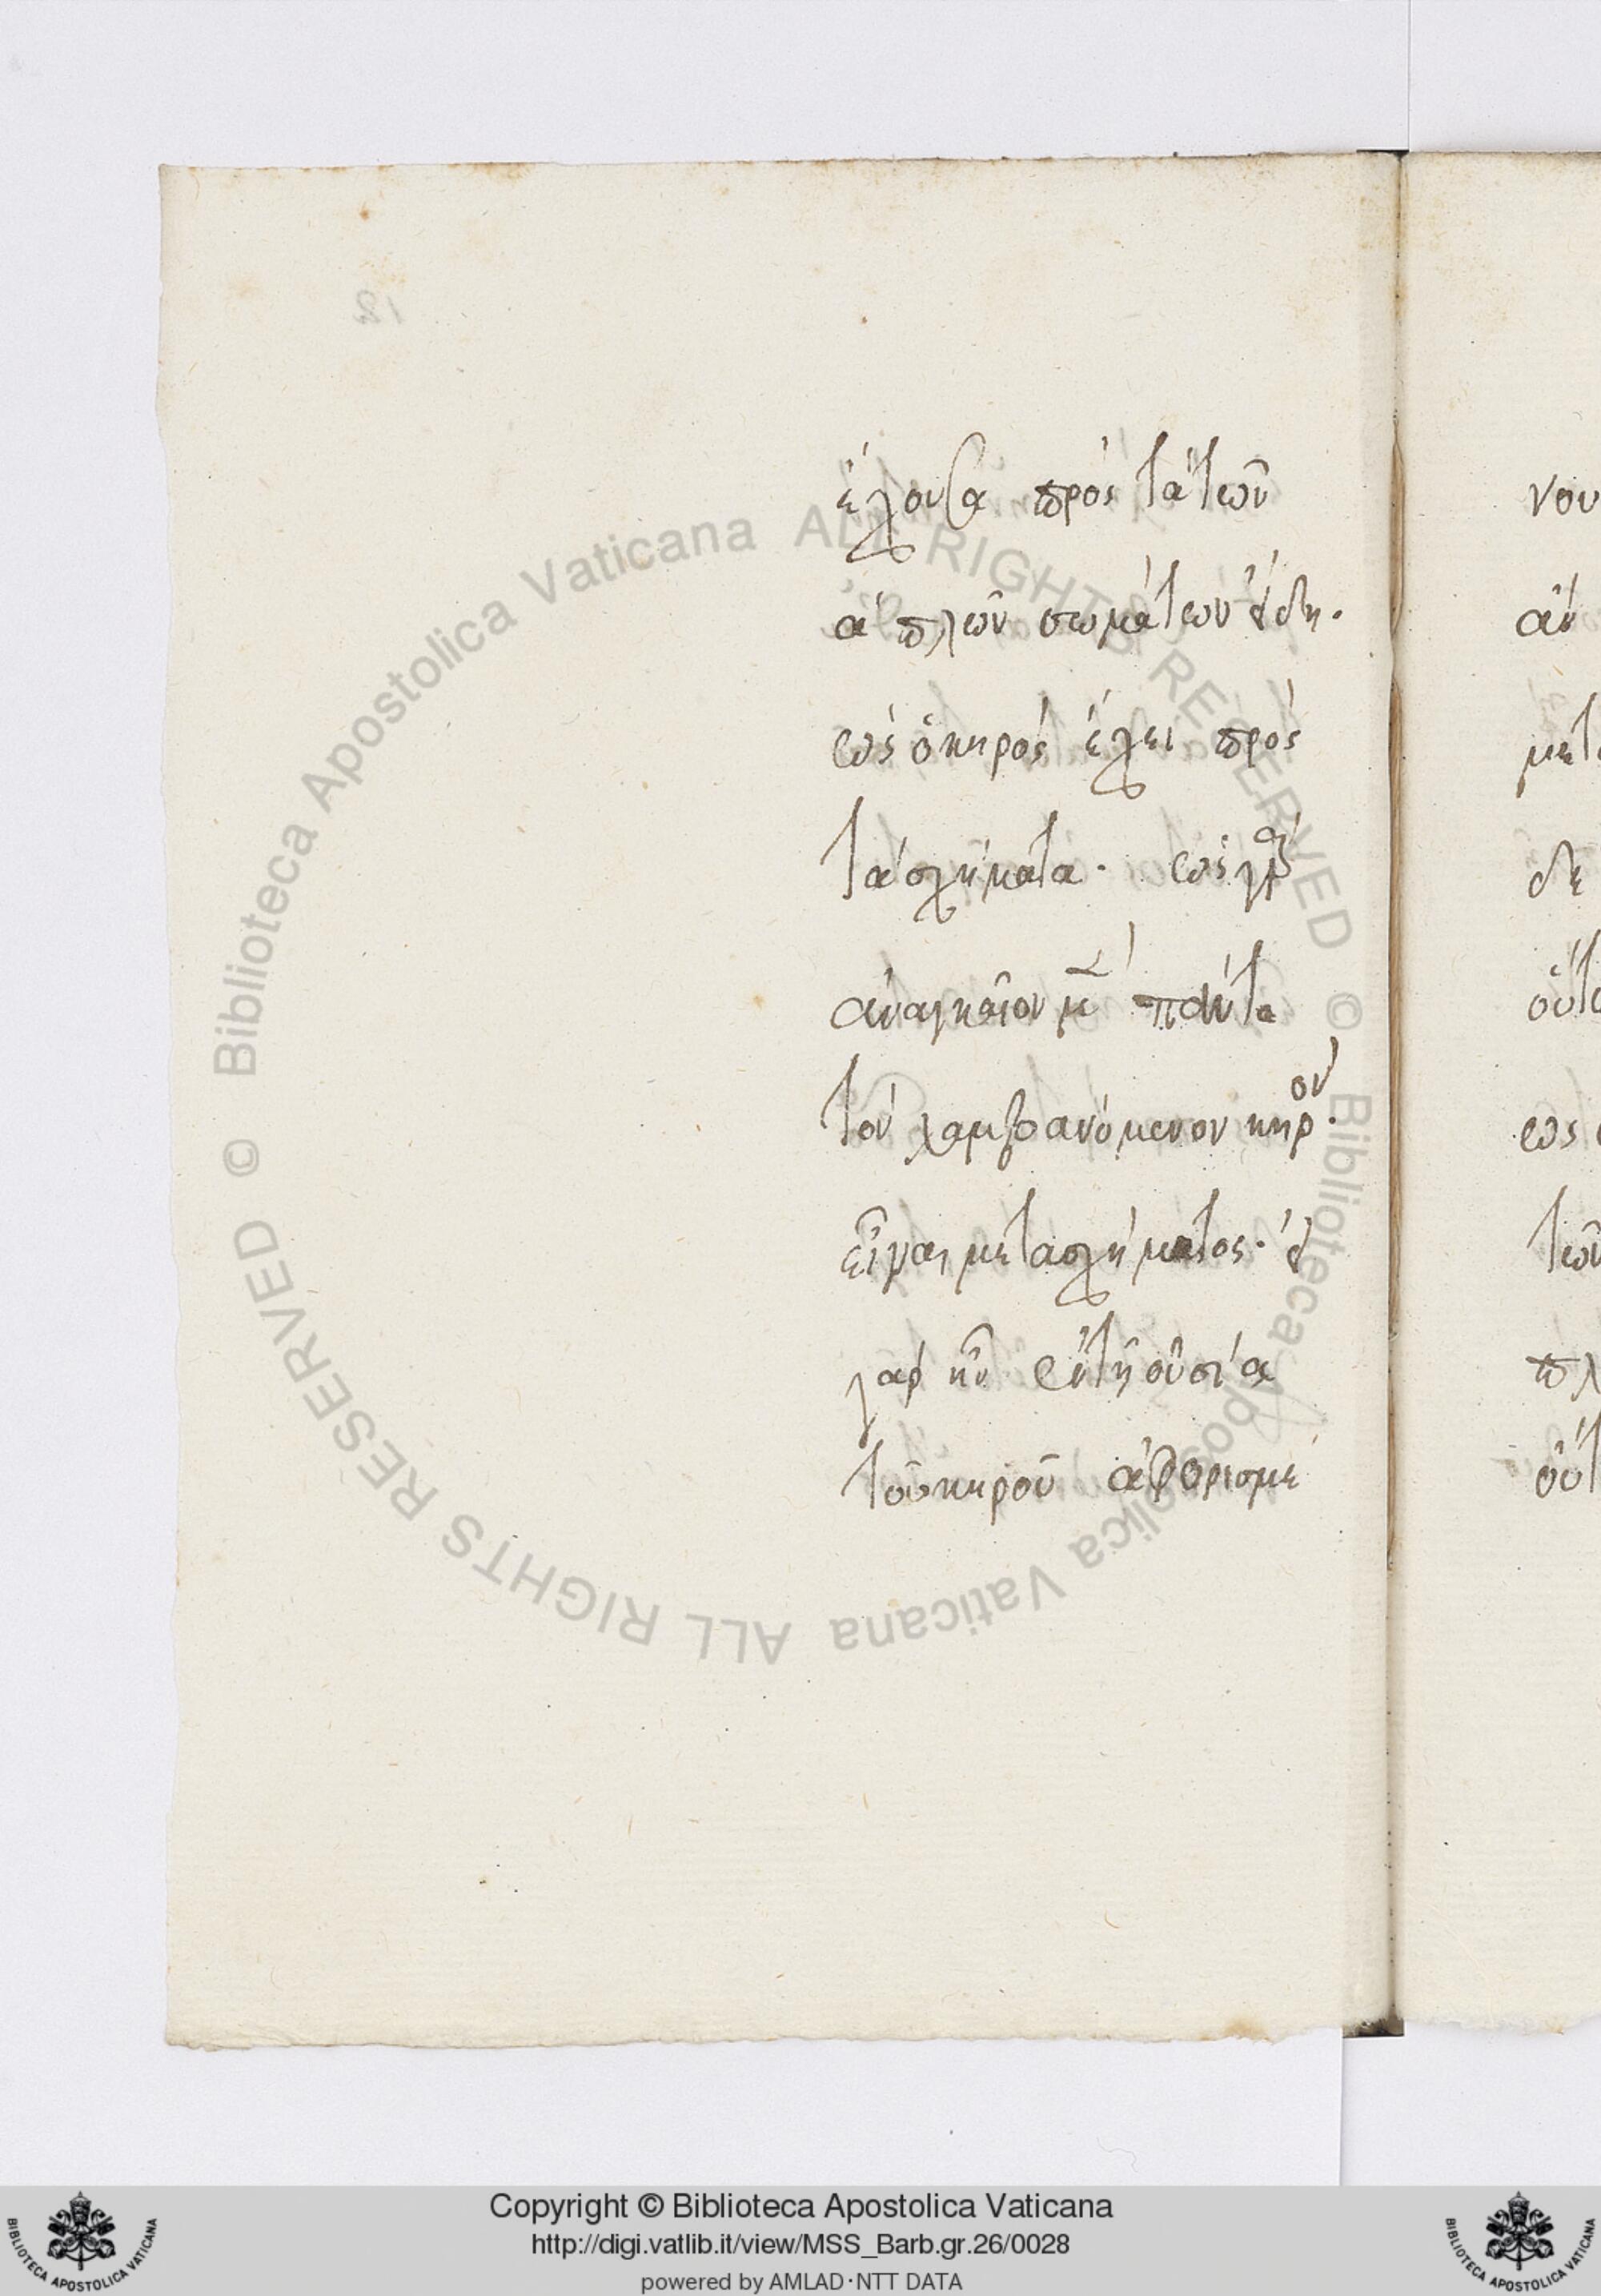 ἔχουσα πρὸς τὰ τῶν
ἁπλῶν σωμάτων εἴδη.
ὡς ὁ κηρὸς ἔχει πρὸς
τὰ σχήματα. ὡς γὰρ
ἀναγκαῖον μὲν πάντα
τὸν λαμβανόμενον κηρὸν.
εἶναι μετὰ σχήματος. οὐ
γὰρ ἦν ἐν τῇ οὐσία
τοῦ κηροῦ ἀφορισμέ
νου
ἂν
δε
ὡς
τῶν
Biblioteca Apostolica Vaticana ALL RIGHTS RESERVED © Biblioteca Apostolica Vaticana ALL RIGHTS RESERVED ©
Copyright © Biblioteca Apostolica Vaticana
http://digi.vatlib.it/view/MSS_Barb.gr.26/0028
powered by AMLAD·NTT DATA
BIBLIOTECA APOSTOLICA VATICANA
BIBLIOTECA APOSTOLICA VATICANA